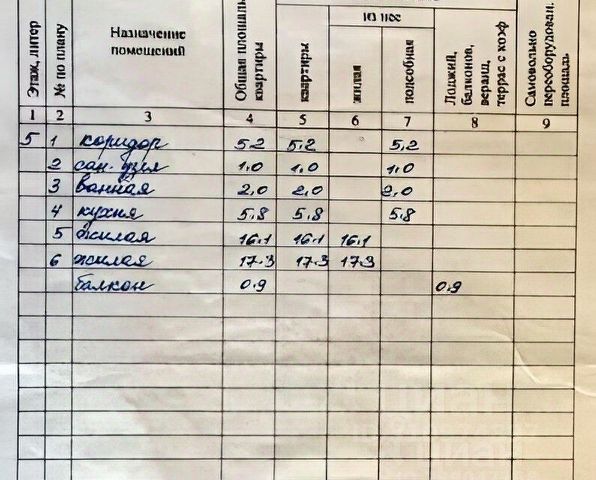 из нее
Этаж, литер
№ по плану
Назначение помещений
Общая площадь квартиры
квартиры
жилая
подсобная
Лоджий, балконов, веранд, террас с коэф
Самовольно переоборудован. площадь
1 2 3 4 5 6 7 8 9
5 1 коридор 5.2 5.2 5.2
2 сан. узел 1.0 1.0 1.0
3 ванная 2.0 2.0 2.0
4 кухня 5.8 5.8 5.8
5 жилая 16.1 16.1 16.1
6 жилая 17.3 17.3 17.3
балкон 0.9 0.9